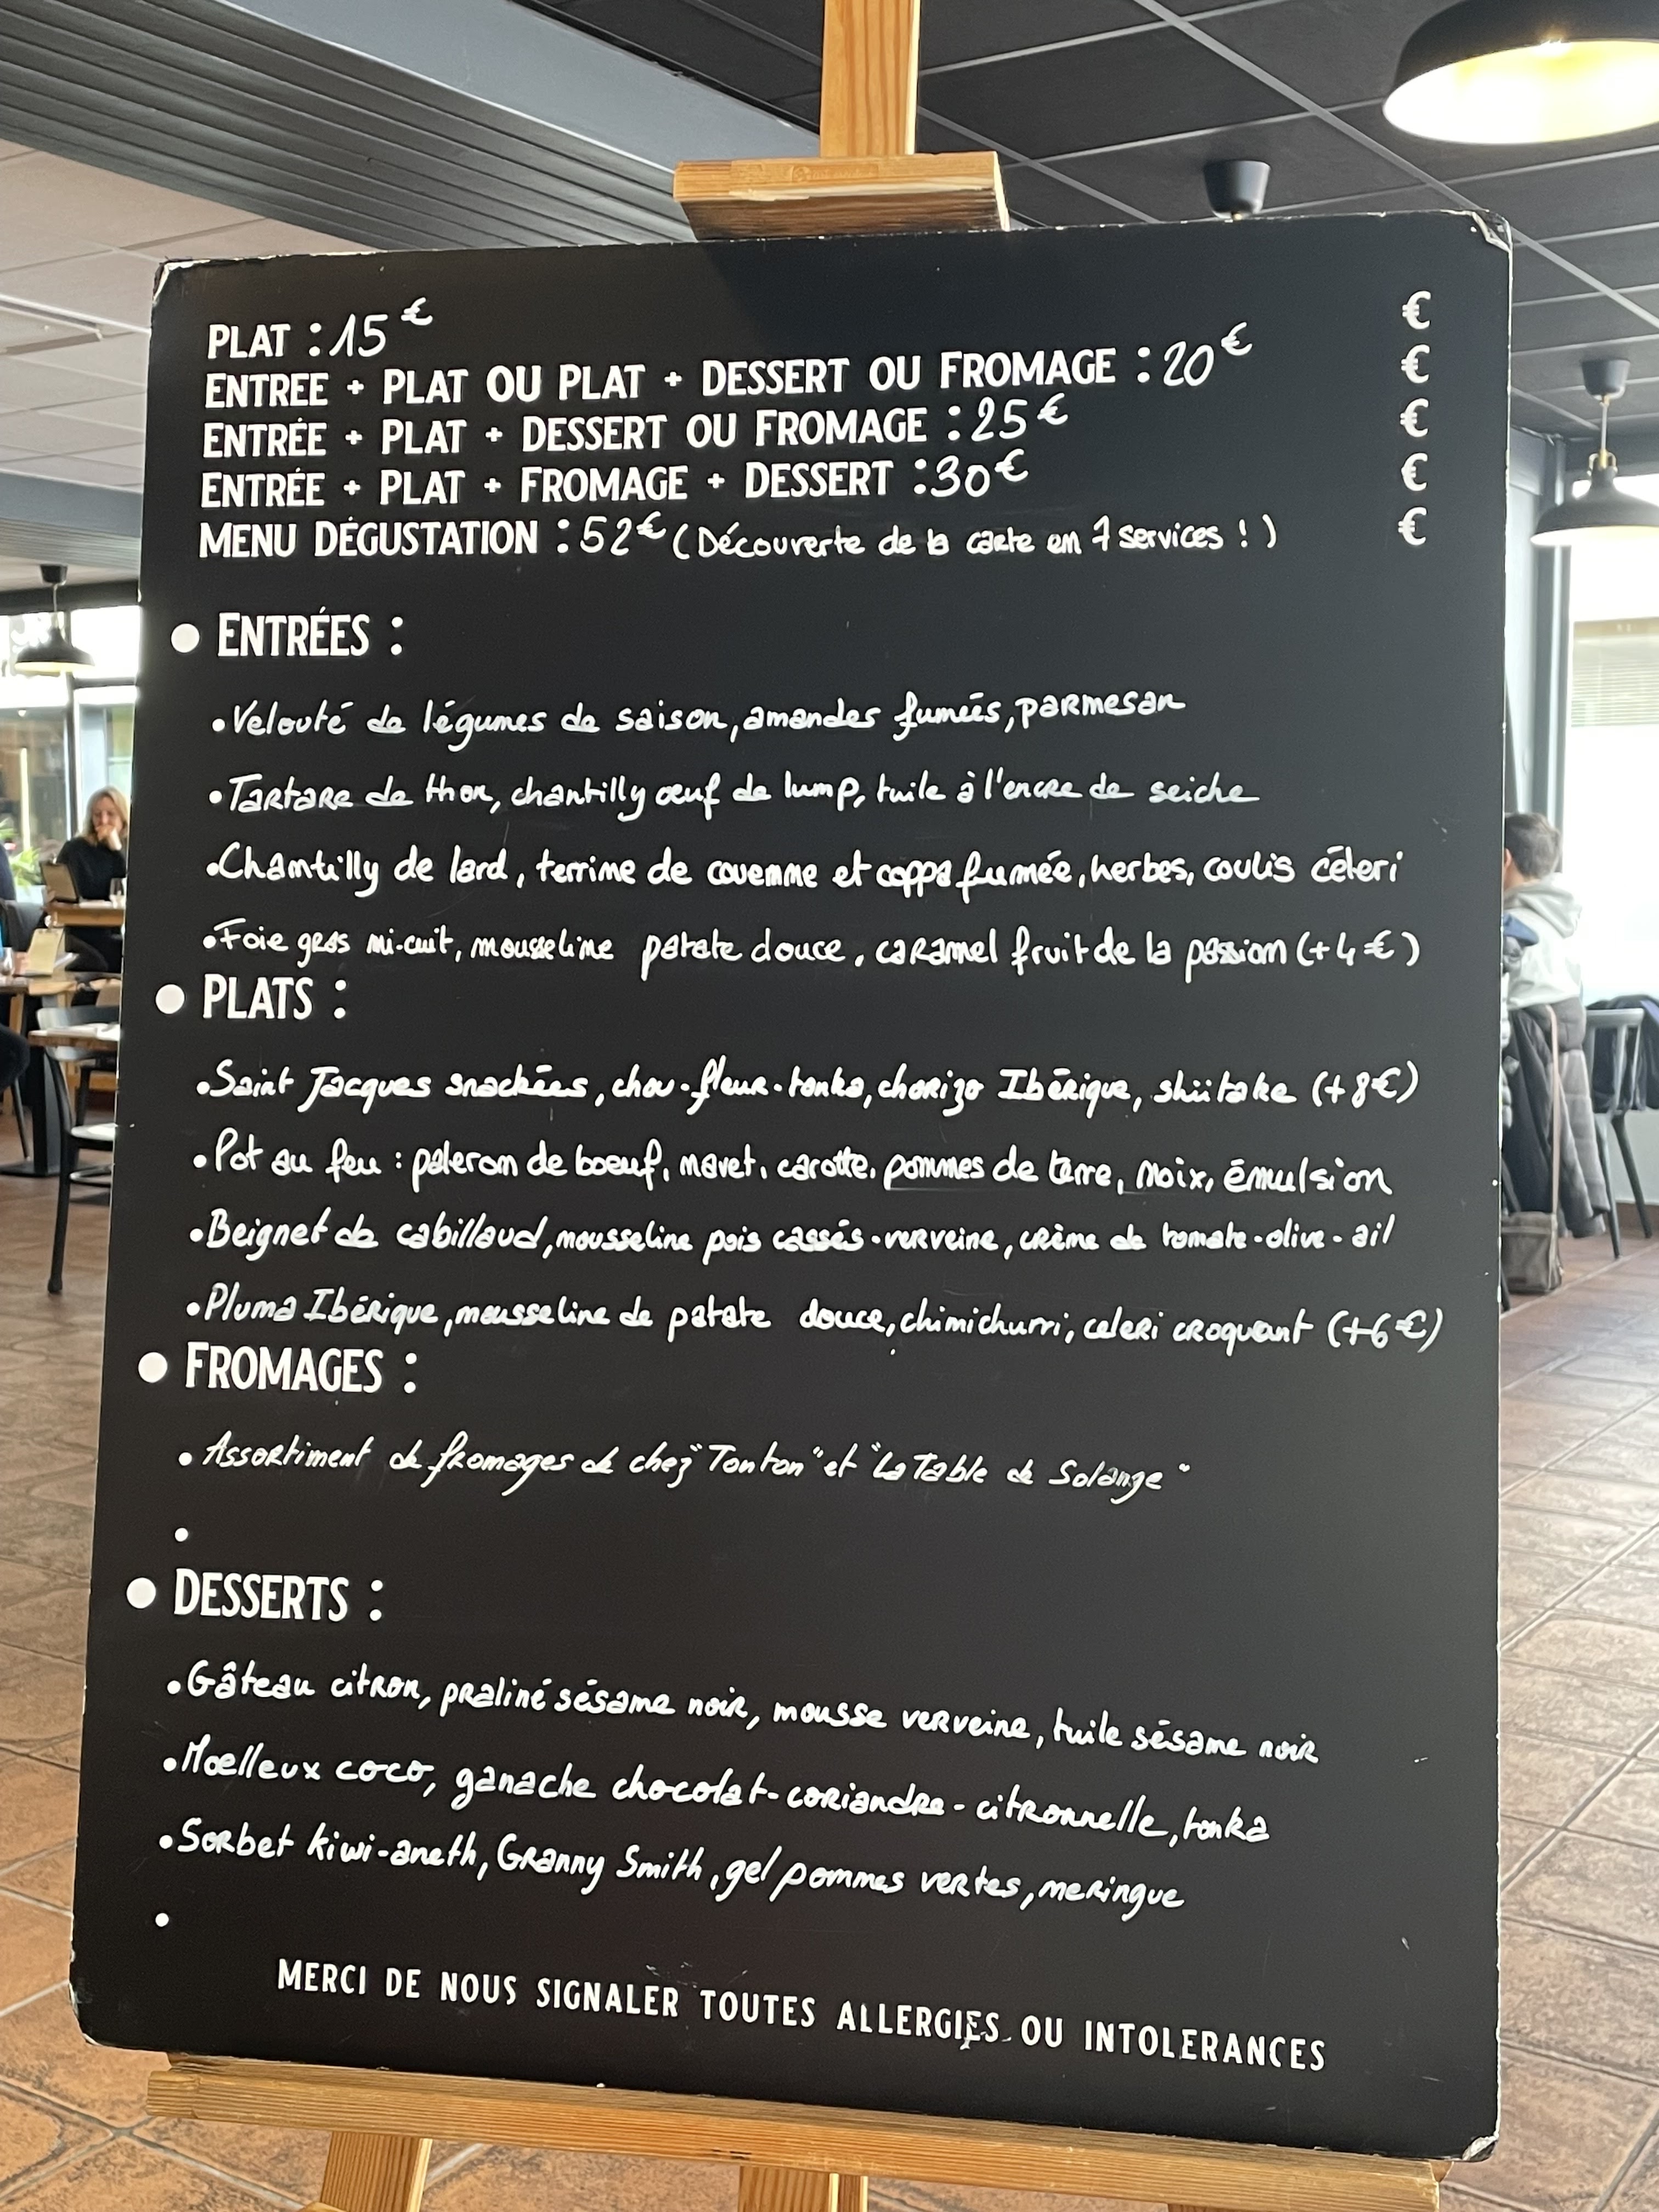 PLAT : 15€ €
ENTREE + PLAT OU PLAT + DESSERT OU FROMAGE : 20€ €
ENTRÉE + PLAT + DESSERT OU FROMAGE : 25€ €
ENTRÉE + PLAT + FROMAGE + DESSERT : 30€ €
MENU DÉGUSTATION : 52€ (Découverte de la carte en 7 services ! ) €
● ENTRÉES :
• Velouté de légumes de saison, amandes fumées, parmesan
• Tartare de thon, chantilly œuf de lump, tuile à l'encre de seiche
• Chantilly de lard, terrine de couenne et coppa fumée, herbes, coulis céleri
• Foie gras mi-cuit, mousseline patate douce, caramel fruit de la passion (+4€)
● PLATS :
• Saint Jacques snackées, chou-fleur-tonka, chorizo Ibérique, shiitake (+8€)
• Pot au feu : paleron de boeuf, navet, carotte, pommes de terre, noix, émulsion
• Beignet de cabillaud, mousseline pois cassés-verveine, crème de tomate-olive-ail
• Pluma Ibérique, mousseline de patate douce, chimichurri, celeri croquant (+6€)
● FROMAGES :
• Assortiment de fromages de chez "Tonton" et "La Table de Solange"
•
● DESSERTS :
• Gâteau citron, praliné sésame noir, mousse verveine, tuile sésame noir
• Moelleux coco, ganache chocolat-coriandre-citronnelle, tonka
• Sorbet kiwi-aneth, Granny Smith, gel pommes vertes, meringue
•
MERCI DE NOUS SIGNALER TOUTES ALLERGIES OU INTOLERANCES